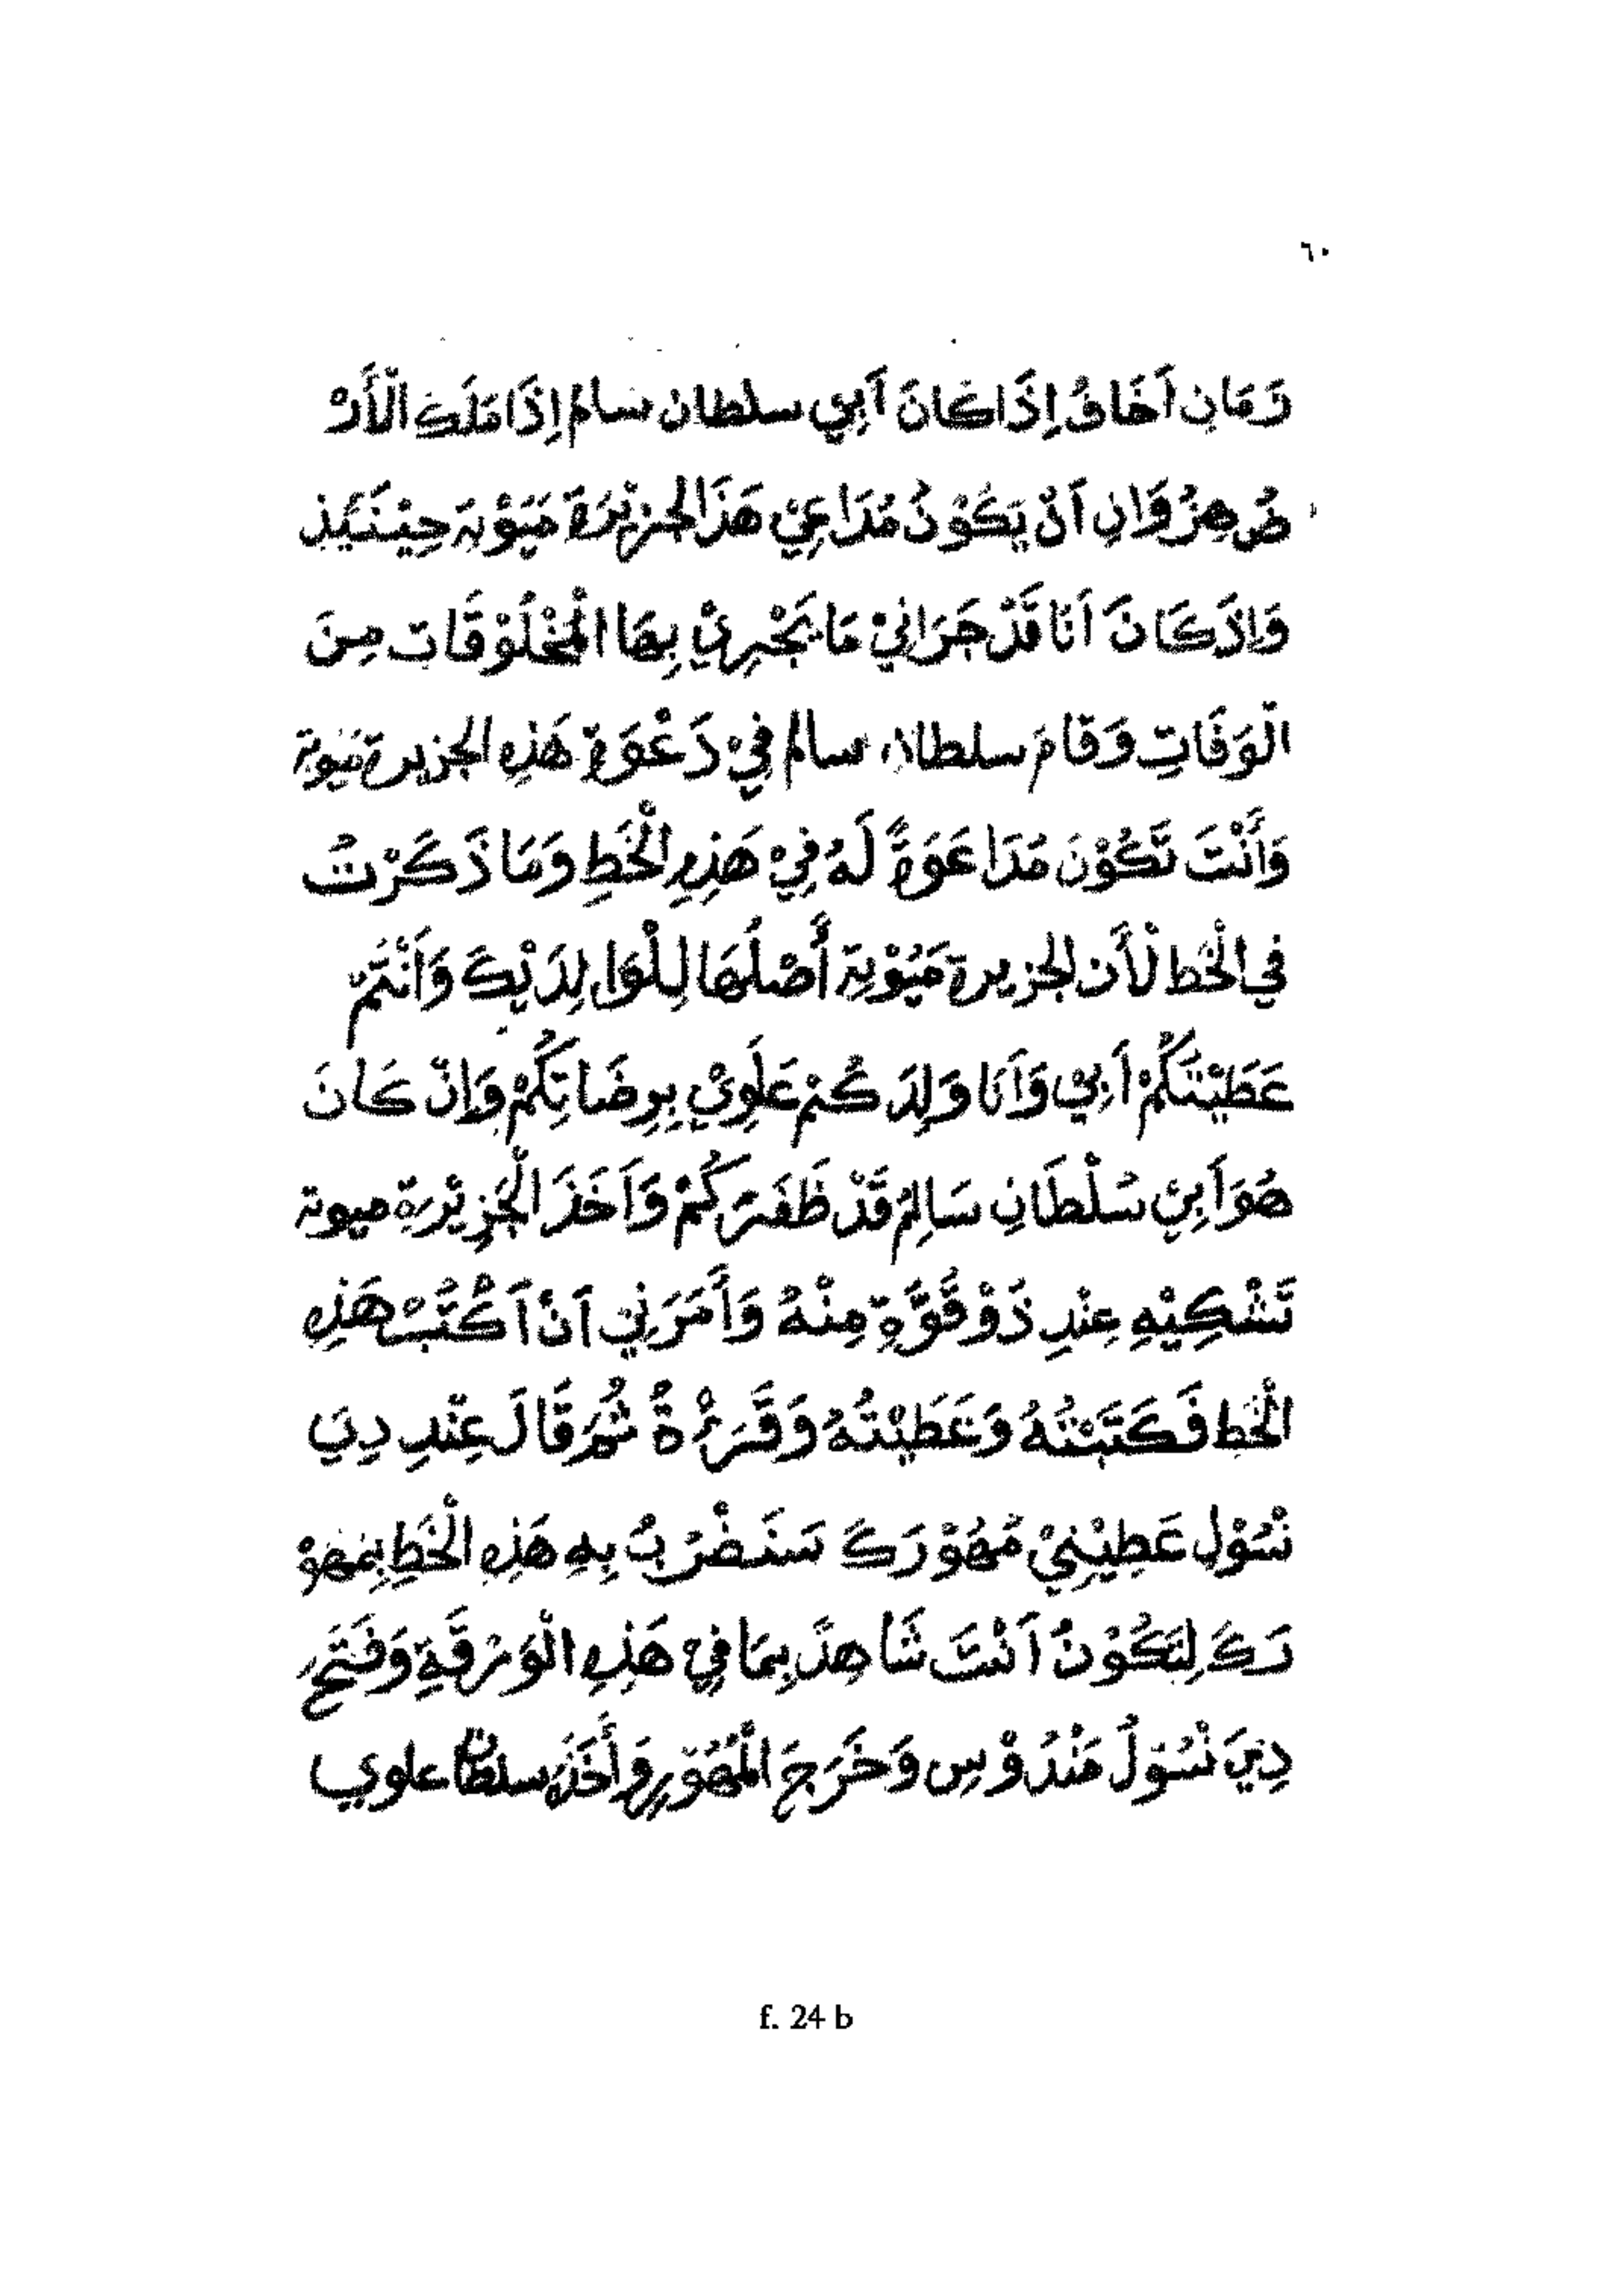 ٦٠
زَمَانِ اَخَافُ إِذَا كَانَ اَبِي سلطان سالم إِذَا مَلَكَ الْأَرْ
ضُ هِزْوَانِ اَنْ يَكُوْنُ مُدَاعِيْ هَذَا الجَزِيْرَةَ مَيَوْتَه حِيْنَئِذٍ
وَاِذَ كَانَ اَنَا قَدْ جَرَانِيْ مَا يَجْرِيْ بِهَا الْمَخْلُوْقَات مِنَ
الْوَفَاتِ وَقَامَ سلطان سالم فِيْ دَعْوَةِ هَذِهِ الجزيرة ميوتة
وَأَنْتَ تَكُوْنَ مُدَاعَوَةً لَهُ فِيْ هَذِهِ الْخَطِ وَمَا ذَكَرْتُ
فِي الْخَط لْأَن الجزيرة مَيُوْتِة أَصْلُهَا لِلْوَالِدَيْكَ وَاَنْتُمْ
عَطَيْتَكُمْ اَبِيْ وَاَنَا وَلِدَكُمْ عَلَوِيْ بِرِضَائِكُمْ وَاِنْ كَانَ
هُوَ اَبِيْ سُلْطَانِ سَالِمُ قَدْ ظَفَرَكُمْ وَاَخَذَ الْجَزِيْرَة ميوتة
تَشْكِيْهِ عِنْدِ ذُوْ قُوَّةٍ مِنْهُ وَأَمَرَنِي اَنْ اَكْتُبْ هَذِهِ
الْخَطِ فَكَتَبْتُهُ وَعَطَيْتُهُ وَقَرَءْةُ ثُمَّ قَالَ عِنْدِ دِيَ
نْسُوْلِ عَطِيْنِيْ مُهُوْرَكَ سَنَضْرُبُ بِهِ هَذِهِ الْخَطِ بِمُهُوْ
رَكَ لِتَكُوْنُ اَنْتَ شَاهِدً بِمَا فِيْ هَذِهِ الْوَرْقَةِ وَفَتَحَ
دِيَ نْسُوْلُ مَنْدُوْسِ وَخَرَجَ الْمُهُوْرِ وَأَخَذَ سلطان علوي
f. 24 b